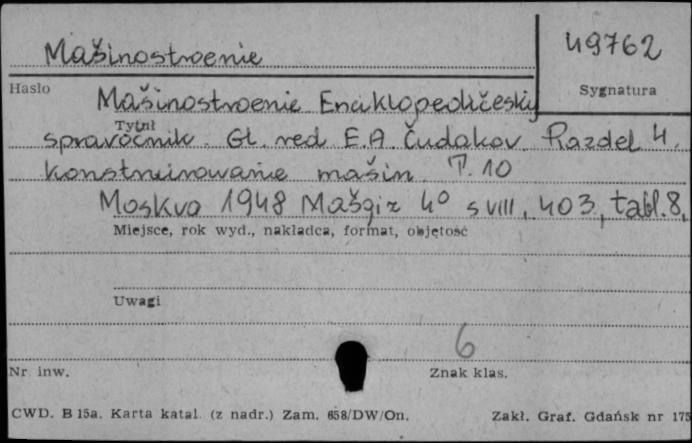 Mašinostroenie
49762
Hasło
Sygnatura
Mašinostroenie Enciklopedičeskij
Tytuł
spravočnik. Gł. red. E.A. Čudakov. Razdel 4.
Konstruirowanie mašin. T. 10
Moskva 1948 Mašgiz 4° s VIII, 403, tabl. 8,
Miejsce, rok wyd., nakładca, format, objętość
Uwagi
6
Nr inw.
Znak klas.
CWD. B 15a. Karta katal. (z nadr.) Zam. 658/DW/On.
Zakł. Graf. Gdańsk nr 175